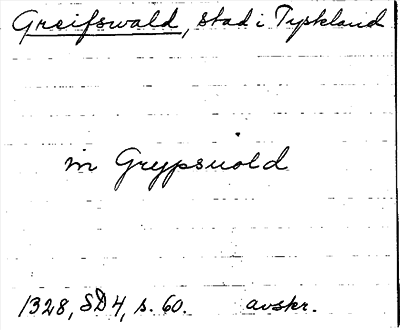 Greifswald, stad i Tyskland
in Grypsuold
1328, SD 4, s. 60. avskr.